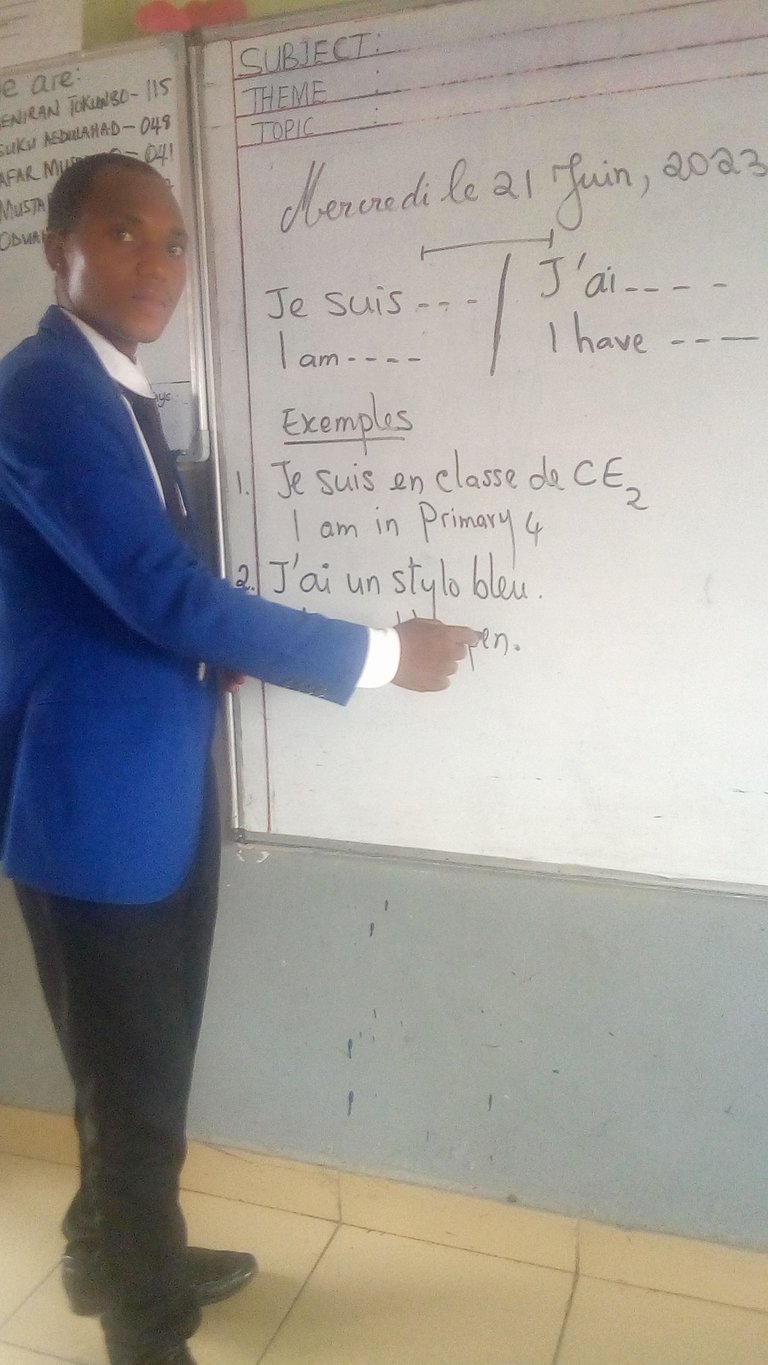 e are:
ENIRAN TOKUNBO - 115
SUKU ABDULAHAD - 048
AFAR MU - 041
MUSTA
ODUA
SUBJECT:
THEME :
TOPIC :
Mercredi le 21 Juin, 2023
Je suis --- / J'ai ----
I am ---- I have ----
Exemples
1. Je suis en classe de CE2
I am in Primary 4
2. J'ai un stylo bleu.
pen.